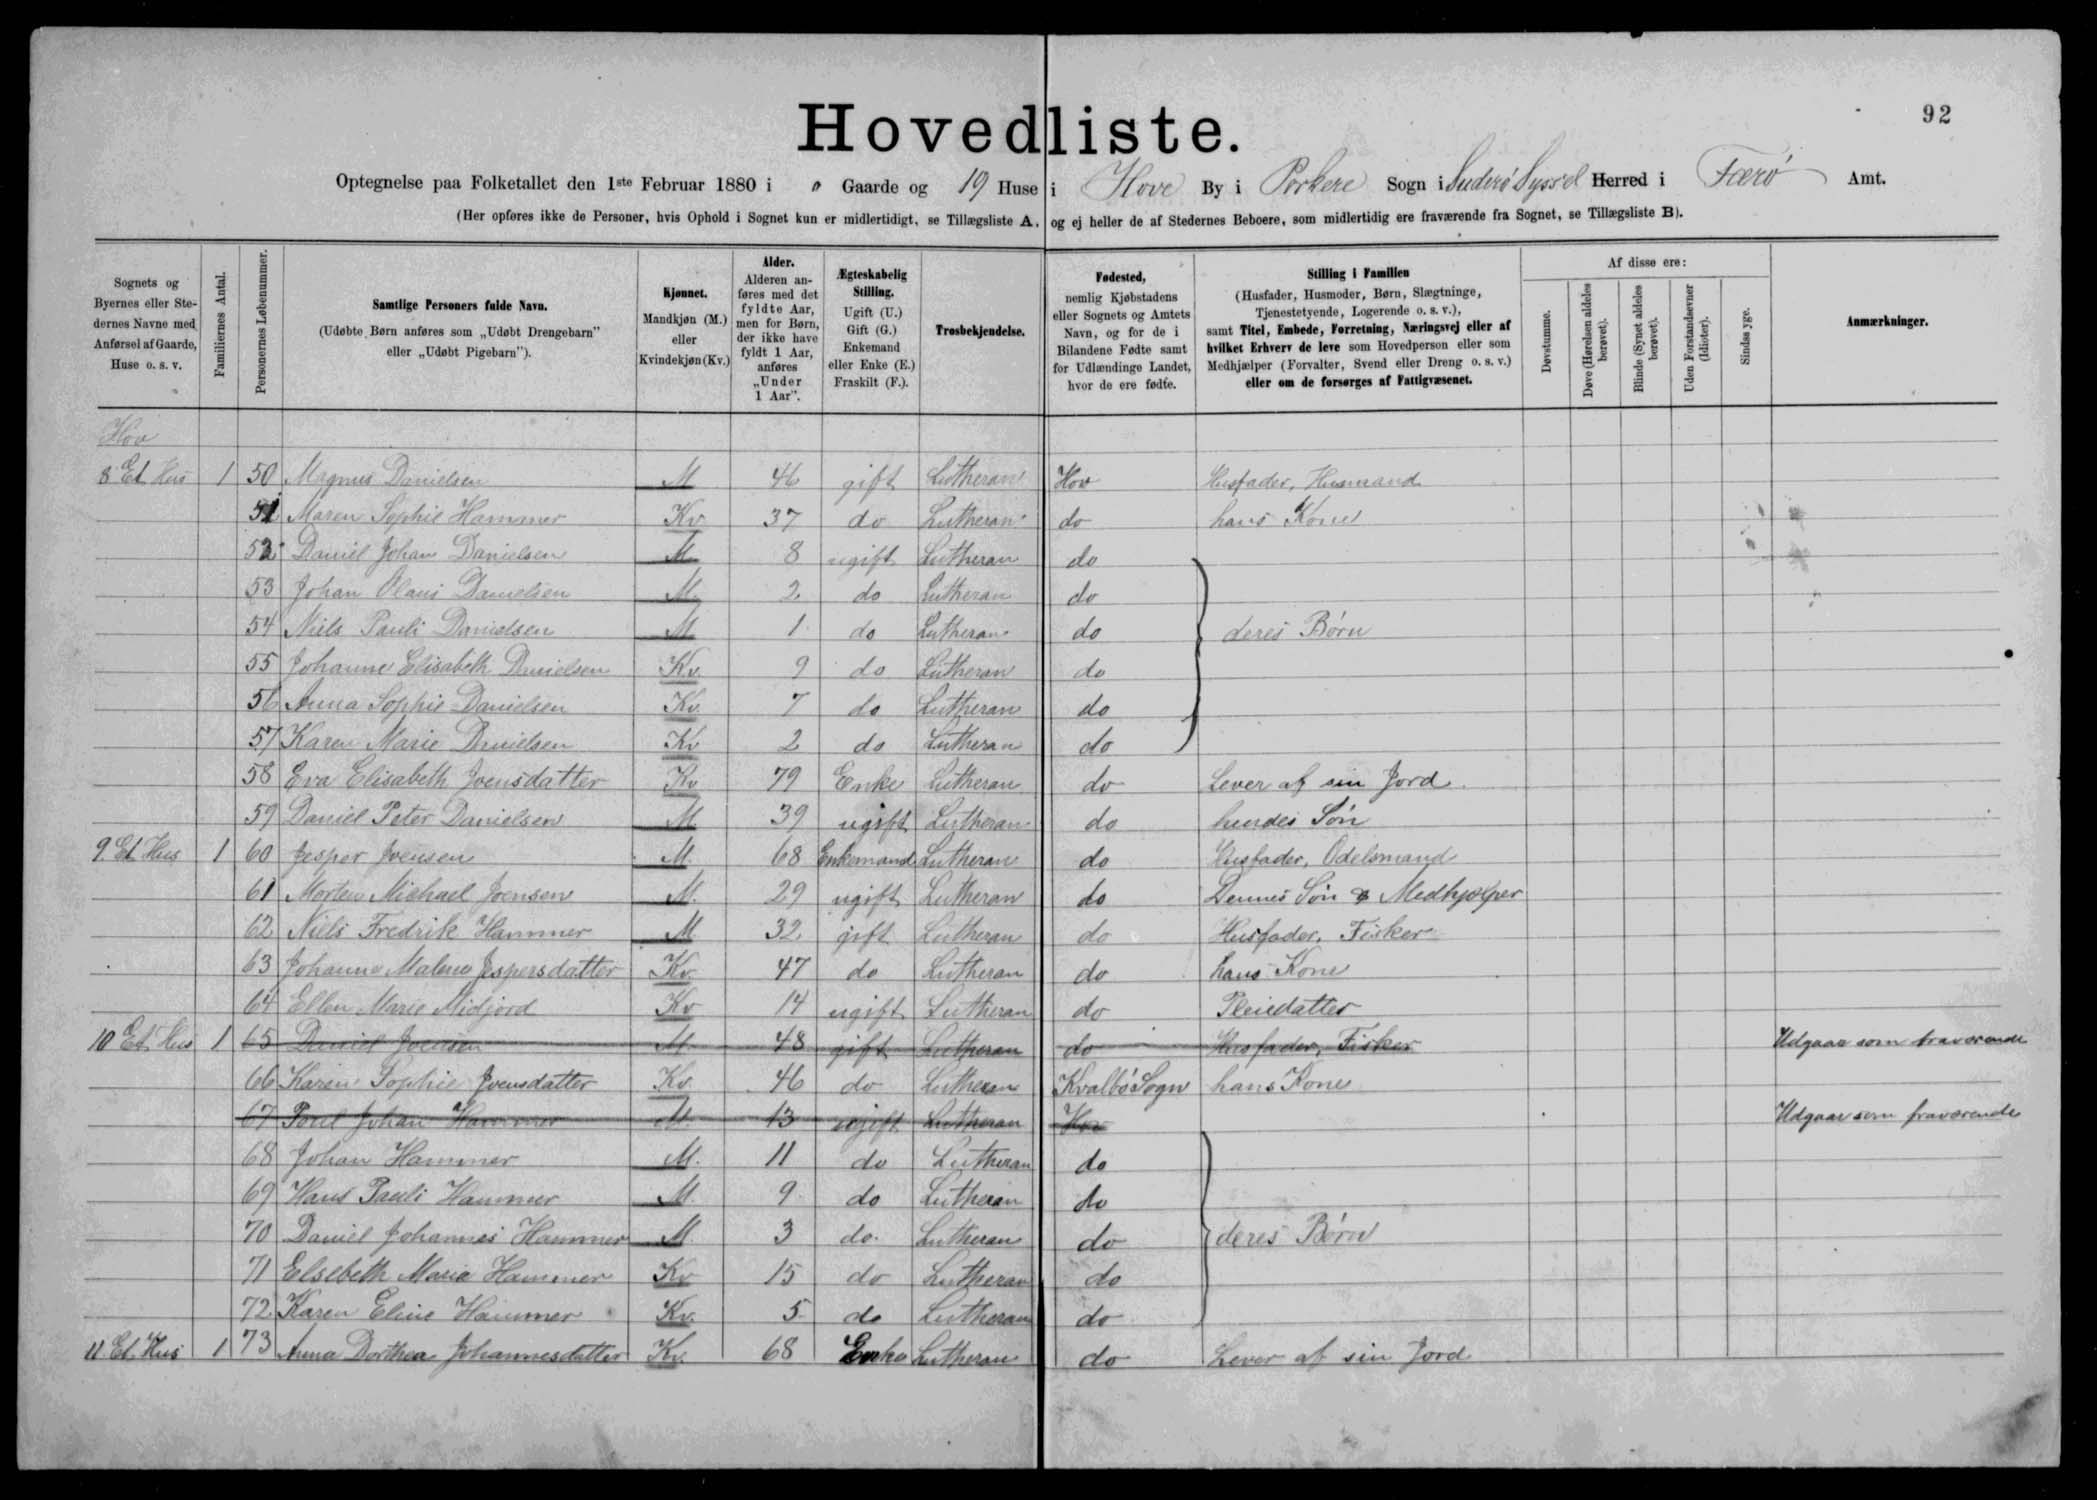 92
Hovedliste.
Optegnelse paa Folketallet den 1ste Februar 1880 i 0 Gaarde og 19 Huse i Hove By i Porkere Sogn i Suderø Syssel Herred i Færø Amt.
(Her opføres ikke de Personer, hvis Ophold i Sognet kun er midlertidigt, se Tillægsliste A, og ej heller de af Stedernes Beboere, som midlertidig ere fraværende fra Sognet, se Tillægsliste B).
Sognets og Byernes eller Stedernes Navne med Anførsel af Gaarde, Huse o. s. v.
Familiernes Antal.
Personernes Løbenummer.
Samtlige Personers fulde Navn.
(Udøbte Børn anføres som „Udøbt Drengebarn" eller „Udøbt Pigebarn").
Kjønnet.
Mandkjøn (M.) eller Kvindekjøn (Kv.)
Alder.
Alderen anføres med det fyldte Aar, men for Børn, der ikke have fyldt 1 Aar, anføres „Under 1 Aar".
Ægteskabelig Stilling.
Ugift (U.) Gift (G.) Enkemand eller Enke (E.) Fraskilt (F.).
Trosbekjendelse.
Fødested,
nemlig Kjøbstadens eller Sognets og Amtets Navn, og for de i Bilandene Fødte samt for Udlændinge Landet, hvor de ere fødte.
Stilling i Familien
(Husfader, Husmoder, Børn, Slægtninge, Tjenestetyende, Logerende o. s. v.), samt Titel, Embede, Forretning, Næringsvej eller af hvilket Erhverv de leve som Hovedperson eller som Medhjælper (Forvalter, Svend eller Dreng o. s. v.) eller om de forsørges af Fattigvæsenet.
Af disse ere:
Døvstumme.
Døve (Hørelsen aldeles berøvet).
Blinde (Synet aldeles berøvet).
Uden Forstandsevner (Idioter).
Sindssyge.
Anmærkninger.
Hov
8 Et Hus 1 50 Magnus Danielsen M 46 gift Lutheran Hov Husfader, Husmand
51 Maren Sophie Hammer Kv. 37 do Lutheran do hans Kone
52 Daniel Johan Danielsen M 8 ugift Lutheran do
53 Johan Olaus Danielsen M. 2 do Lutheran do
54 Niels Pauli Danielsen M 1 do Lutheran do deres Børn
55 Johanne Elisabeth Danielsen Kv. 9 do Lutheran do
56 Anna Sophie Danielsen Kv. 7 do Lutheran do
57 Karen Marie Danielsen Kv 2 do Lutheran do
58 Eva Elisabeth Joensdatter Kv 79 Enke Lutheran do Lever af sin Jord
59 Daniel Peter Danielsen M 39 ugift Lutheran do hendes Søn
9. Et Hus 1 60 Jesper Joensen M. 68 Enkemand Lutheran do Husfader, Odelsmand
61 Morten Michael Joensen M. 29 ugift Lutheran do Dennes Søn & Medhjælper
62 Niels Fredrik Hammer M 32 gift Lutheran do Husfader, Fisker
63 Johanne Malene Jespersdatter Kv. 47 do Lutheran do hans Kone
64 Ellen Marie Midjord Kv 14 ugift Lutheran do Pleiedatter
10 Et Hus 1 65 Daniel Joensen M. 48 gift Lutheran do Husfader, Fisker Udgaar som fraværende
66 Karin Sophie Joensdatter Kv. 46 do Lutheran Kvalbø Sogn hans Kone
67 Poul Johan Hammer M. 13 ugift Lutheran Hov Udgaar som fraværende
68 Johan Hammer M. 11 do Lutheran do
69 Hans Pauli Hammer M. 9 do Lutheran do
70 Daniel Johannes Hammer M 3 do. Lutheran do deres Børn
71 Elsebeth Maria Hammer Kv 15 do Lutheran do
72 Karen Eline Hammer Kv. 5 do Lutheran do
11 Et Hus 1 73 Anna Dorthea Johannesdatter Kv. 68 Enke Lutheran do Lever af sin Jord